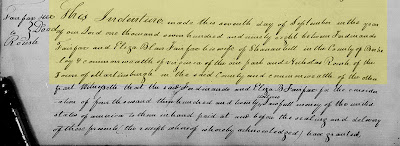 Fairfax &c
This Indenture made this seventh day of September in the year
To } Deed
of our Lord one thousand seven hundred and ninety eight between Ferdinando
Roush
Fairfax and Eliza Blair Fairfax his wife of Shannon hill in the County of Berke
ley & commonwealth of virginia of the one part and Nicholas Roush of the
Town of Martinsburgh in the said County and commonwealth of the other
part Witnesseth that the said Ferdinando and Eliza B Fairfax for the conside
ration of four thousand three hundred and lawfull money of the united
states of america to them in hand paid at and before the sealing and delivery
of these presents (the receipt whereof is hereby acknowledged) have granted,